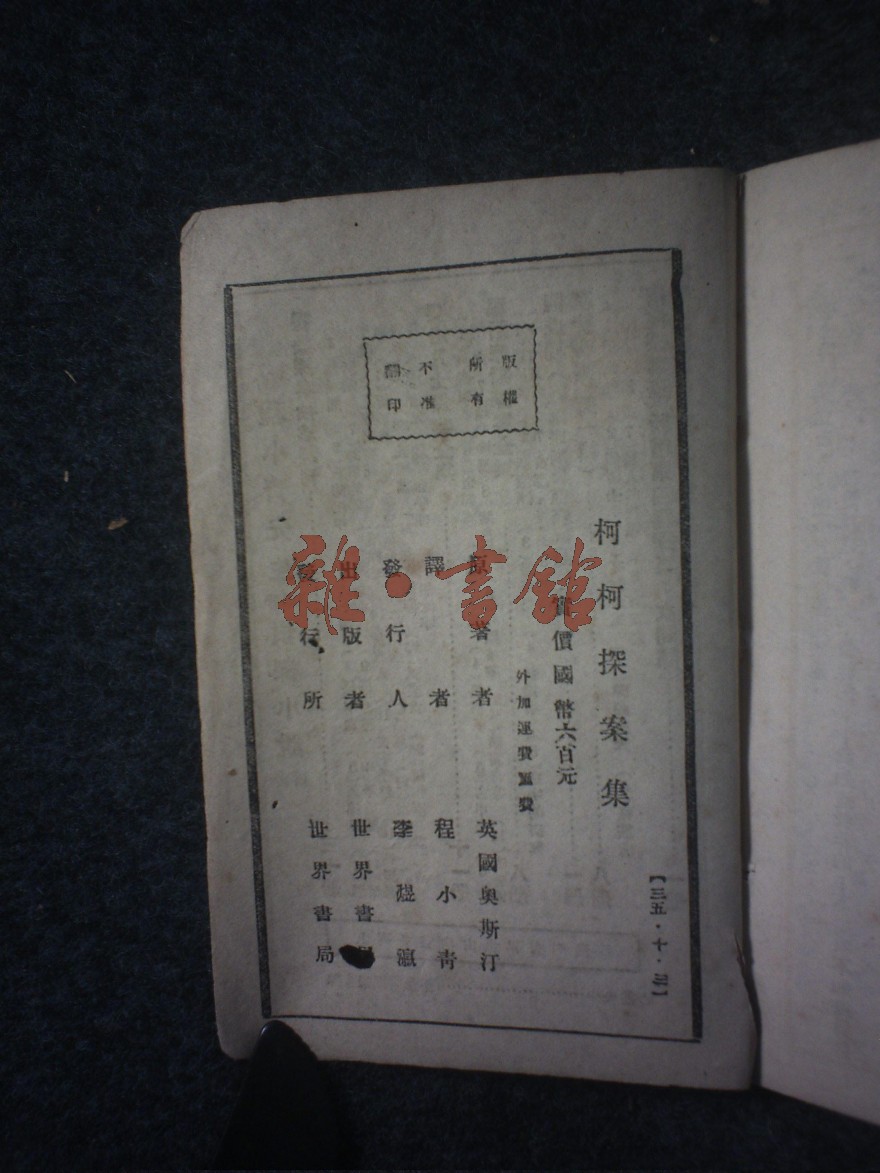 版權
所有
不准
翻印
柯柯探案集
【三五·十·三】
實價國幣六百元
外加運費匯費
原著者 英國奧斯汀
譯者 程小青
發行人 李 瀛
出版者 世界書局
發行所 世界書局
雜·書館